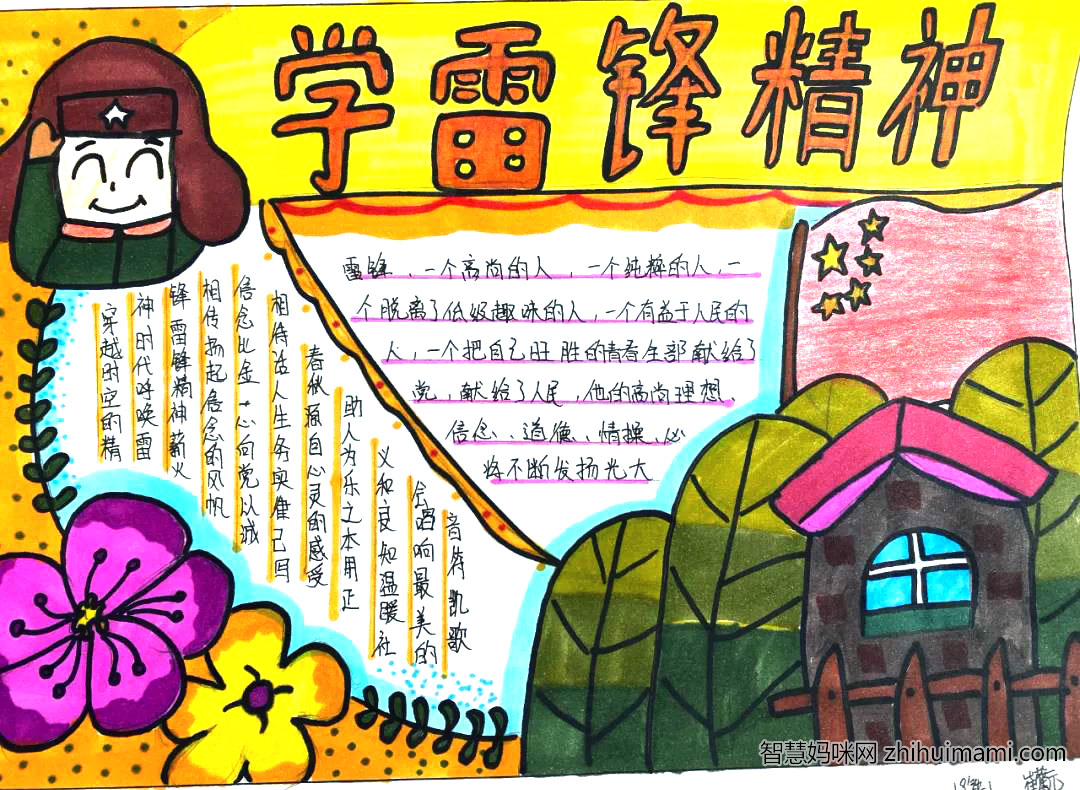 学雷锋精神
雷锋，一个高尚的人，一个纯粹的人，一
个脱离了低级趣味的人，一个有益于人民的
人，一个把自己旺胜的青春全部献给了
党，献给了人民，他的高尚理想、
信念、道德、情操、必
将不断发扬光大
穿越时空的精
神时代呼唤雷
锋雷锋精神薪火
相传扬起信念的风帆
信念比金心向党以诚
相待活人生务实律己用
春秋源自心灵的感受
助人为乐之本用正
义和良知温暖社
会唱响最美的
音符凯歌
智慧妈咪网 zhihuimami.com